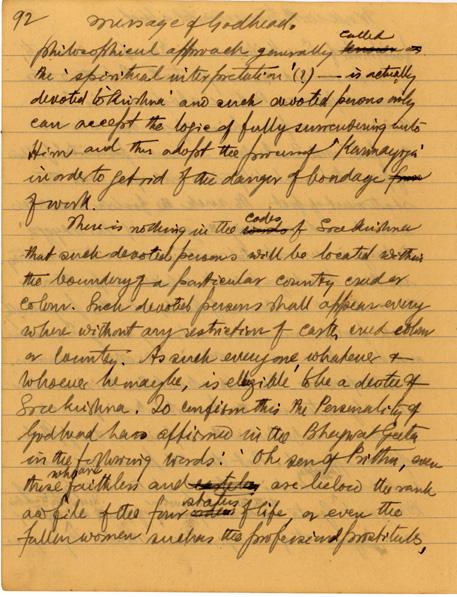 92
Message of Godhead.
philosophical approach generally called as
the 'spiritual interpretation' (?) — is actually
devoted to 'Krishna' and such devoted persons only
can accept the logic of fully surrendering unto
Him and thus adopt the process of 'Karmayoga'
in order to get rid of the danger of bondage
of work.
There is nothing in the codes of Sree Krishna
that such devoted persons will be located within
the boundery of a particular country creed or
colour. Such devoted persons shall appear every
where without any restriction of caste, creed colour
or Country. As such every one whatever &
whoever he maybe, is elegible to be a devotee of
Sree Krishna. To confirm this the Personality of
Godhead has affirmed in the Bhagwat Geeta
in the following words:- 'Oh son of Pritha, even
those who are faithless and are below the rank
and file of the four status of life or even the
fallen women such as the professional prostitutes,